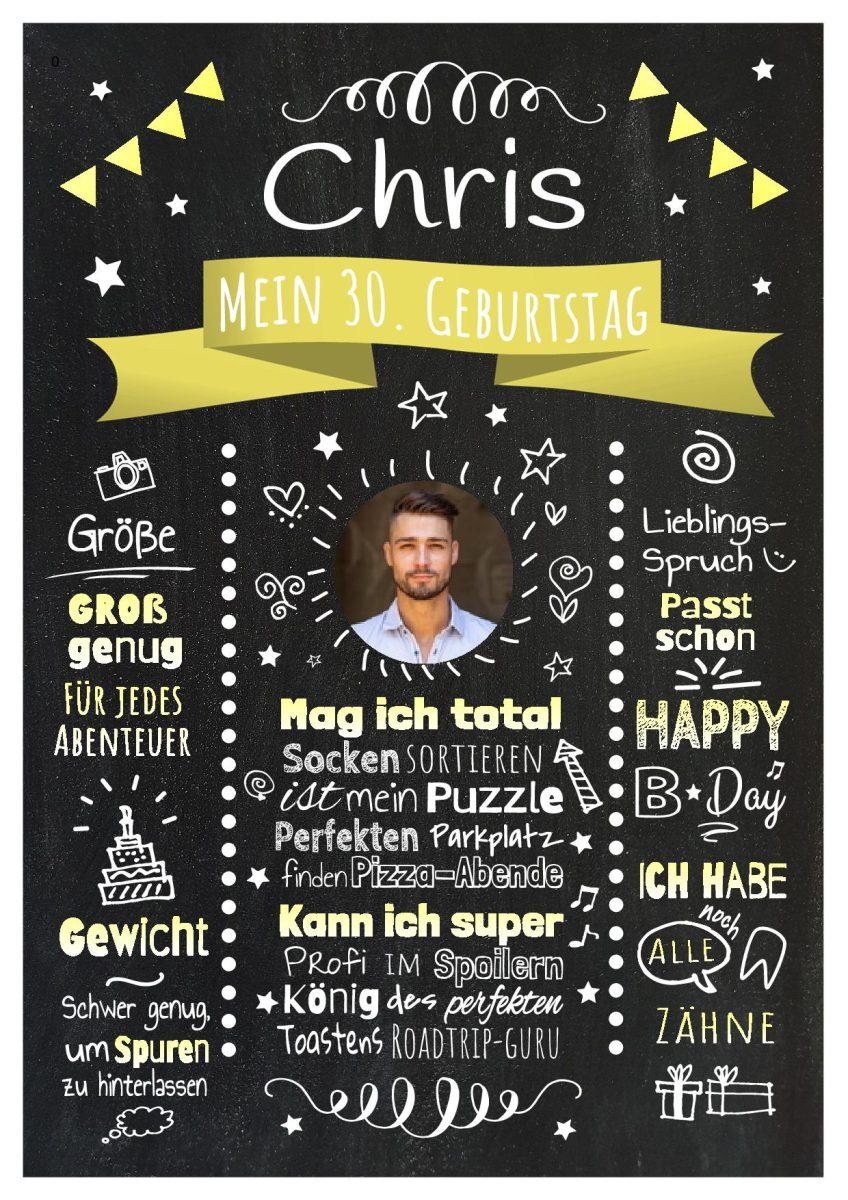 0
Chris
Mein 30. Geburtstag
Größe
GROß
genug
FÜR JEDES
ABENTEUER
Gewicht
Schwer genug,
um Spuren
zu hinterlassen
Mag ich total
Socken SORTIEREN
ist mein Puzzle
Perfekten Parkplatz
finden Pizza-Abende
Kann ich super
Profi IM Spoilern
König des perfekten
Toastens ROADTRIP-GURU
Lieblings-
Spruch
Passt
schon
HAPPY
B Day
ICH HABE
noch
ALLE
ZÄHNE